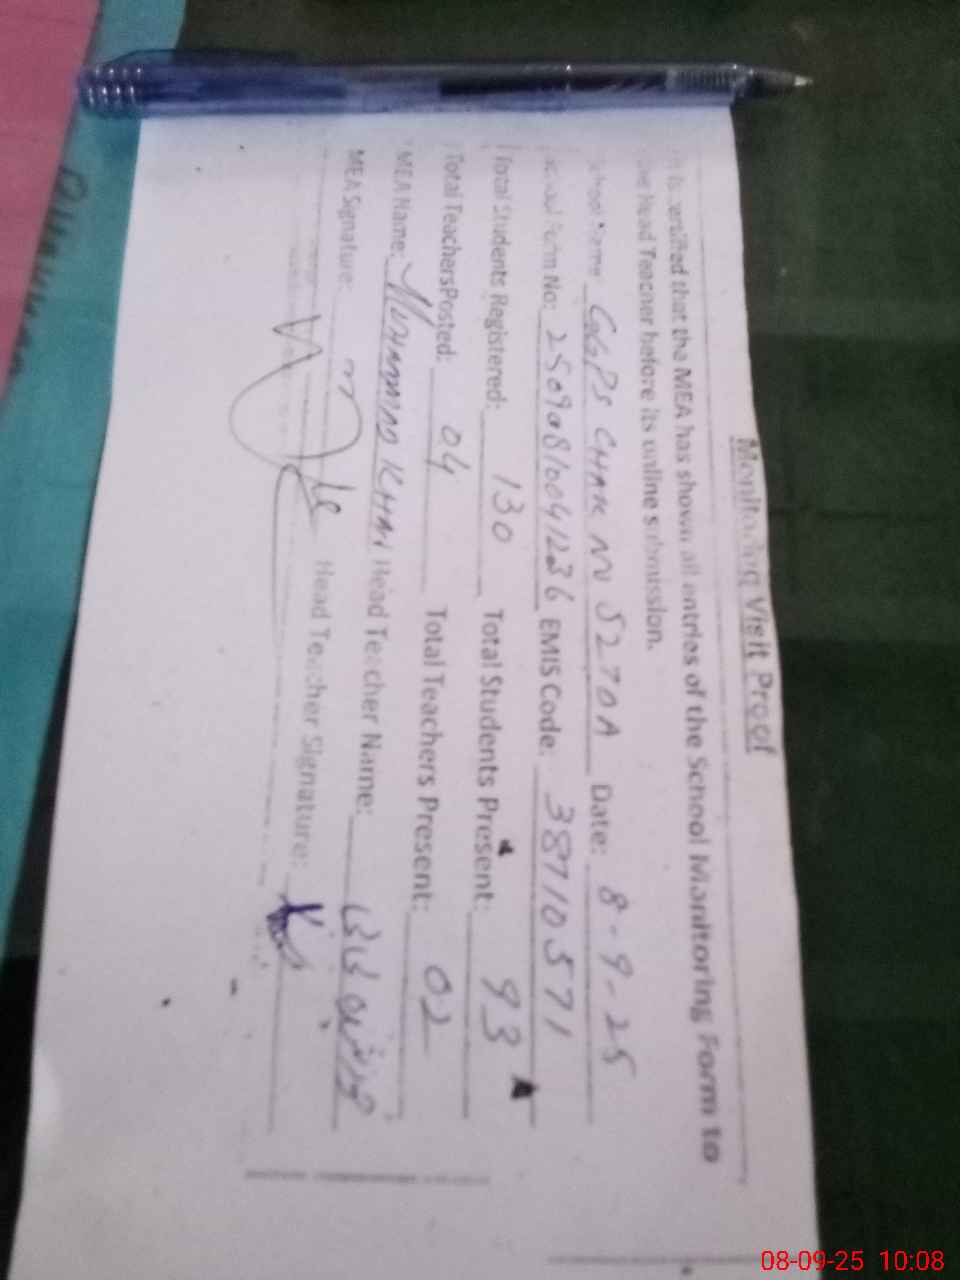 Monitoring Visit Proof
It is certified that the MEA has shown all entries of the School Monitoring Form to
the Head Teacher before its online submission.
School Name GGPS CHAK NO 527DA Date: 8-9-25
Form No: 25090810041236 EMIS Code: 38710571
Total Students Registered: 130 Total Students Present: 93
Total Teachers Posted: 04 Total Teachers Present: 02
MEA Name: MUHAMMAD KHAN Head Teacher Name:
MEA Signature: Head Teacher Signature:
08-09-25 10:08